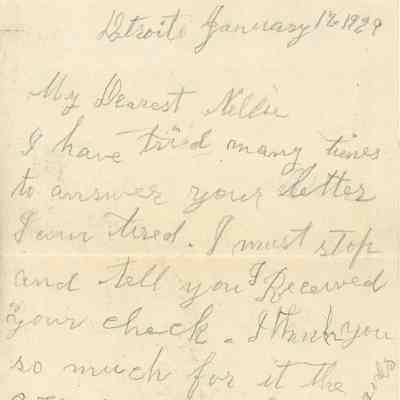 Detroit January 1st 1929
My Dearest Nellie
I have tried many times
to answer your letter
I am tired. I must stop
and tell you I Received
your check. I thank you
so much for it the